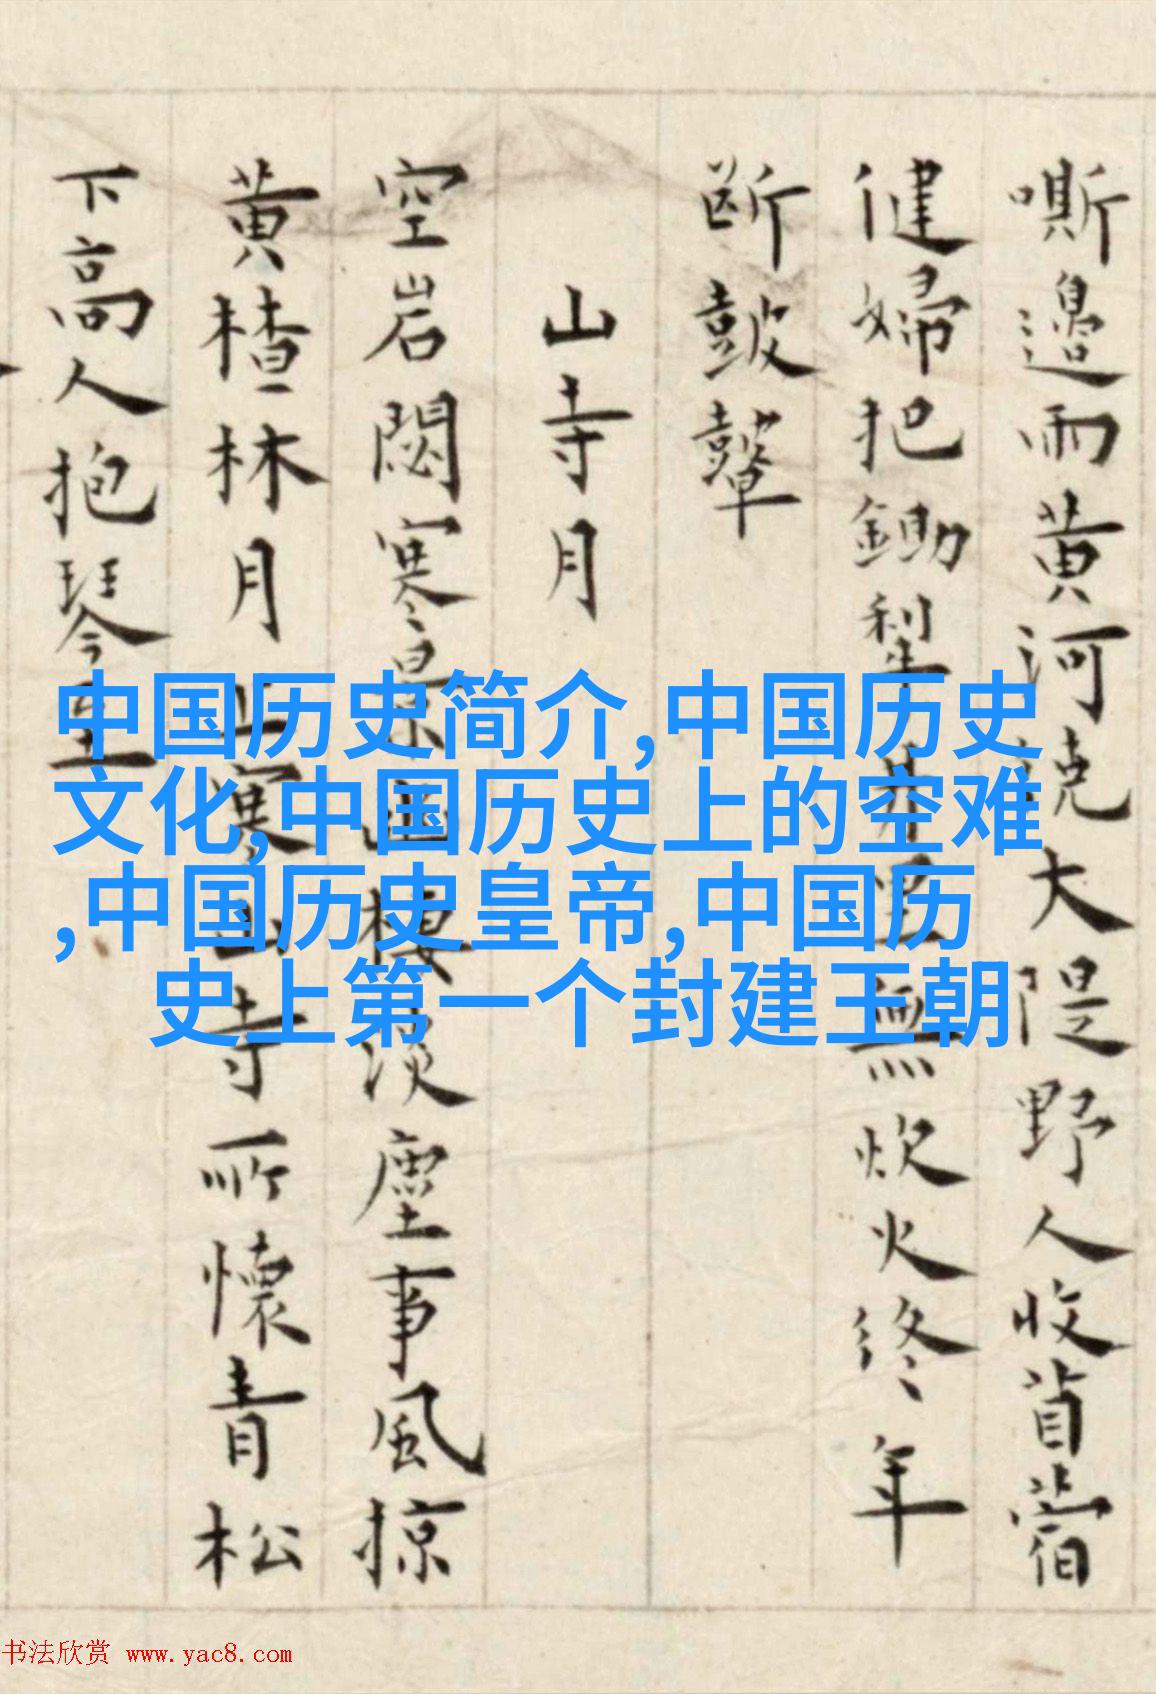 嘶邊雨黄河大隄野人收苜蓿
健婦把鋤犁井里無炊火終年
斷鼓鼙
山寺月
空岩閟寒景幽棲淡塵事風掠
黄楂林月上寒山寺所懷青松
下高人抱琴至
中国历史简介,中国历史
文化,中国历史上的空难
,中国历史皇帝,中国历
史上第一个封建王朝
书法欣赏 www.yac8.com